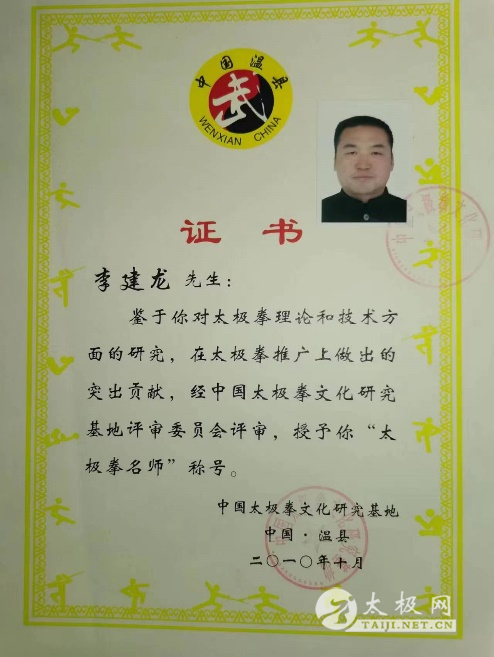 中国温县
武
WENXIAN CHINA
证书
李建龙 先生：
鉴于你对太极拳理论和技术方
面的研究，在太极拳推广上做出的
突出贡献，经中国太极拳文化研究
基地评审委员会评审，授予你“太
极拳名师”称号。
中国太极拳文化研究基地
中国·温县
二〇一〇年十月
太极网
TAIJI.NET.CN